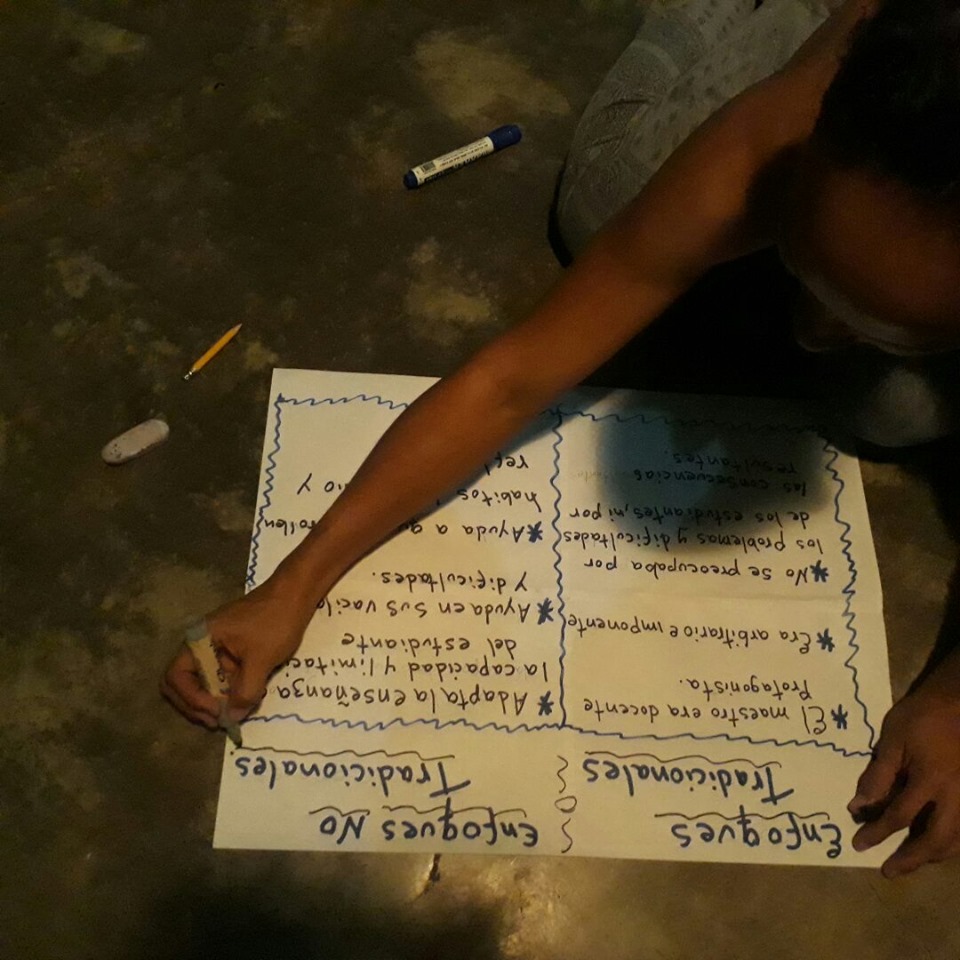 Enfoques
Tradicionales
* El maestro era docente
Protagonista.
* Era arbitrario e imponente
* No se preocupaba por
los problemas y dificultades
de los estudiantes, ni por
las consecuencias
resultantes.
Enfoques No
Tradicionales
* Adapta la enseñanza
la capacidad y
del estudiante
* Ayuda en sus
y dificultades.
* Ayuda a
habitos y